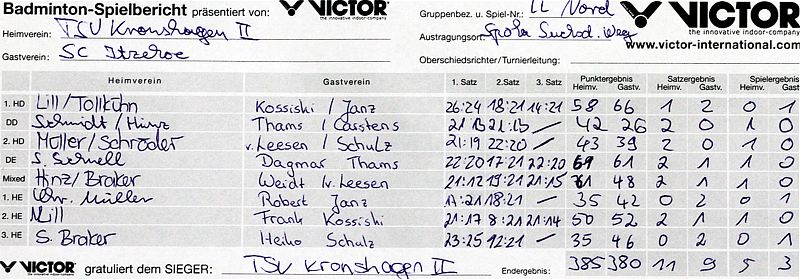 Badminton-Spielbericht präsentiert von: VICTOR the innovative indoor-company Gruppenbez. u. Spiel-Nr.: LL Nord VICTOR the innovative indoor-company
Heimverein: TSV Kronshagen II Austragungsort: www.victor-international.com
Gastverein: SC Itzehoe Oberschiedsrichter/Turnierleitung:
Heimverein Gastverein 1. Satz 2. Satz 3. Satz Punktergebnis Heimv. Gastv. Satzergebnis Heimv. Gastv. Spielergebnis Heimv. Gastv.
1. HD Lill/Tollkühn Kossiski / Janz 26:24 18:21 14:21 58 66 1 2 0 1
DD Schmidt/Hinz Thams / Carstens 21:13 21:13 — 42 26 2 0 1 0
2. HD Müller/Schröder v.Leesen / Schulz 21:19 22:20 — 43 39 2 0 1 0
DE S. Schnell Dagmar Thams 22:20 17:21 22:20 61 2 1 1 0
Mixed Hinz/Braker Weidt /v.Leesen 21:12 19:21 21:15 61 48 2 1 1 0
1. HE Chr. Müller Robert Janz 17:21 18:21 — 35 42 0 2 0 1
2. HE Lill Frank Kossiski 21:17 8:21 21:14 50 52 2 1 1 0
3. HE S. Braker Heiko Schulz 23:25 12:21 — 35 46 0 2 0 1
VICTOR gratuliert dem SIEGER: TSV Kronshagen II Endergebnis: 385 380 11 9 5 3